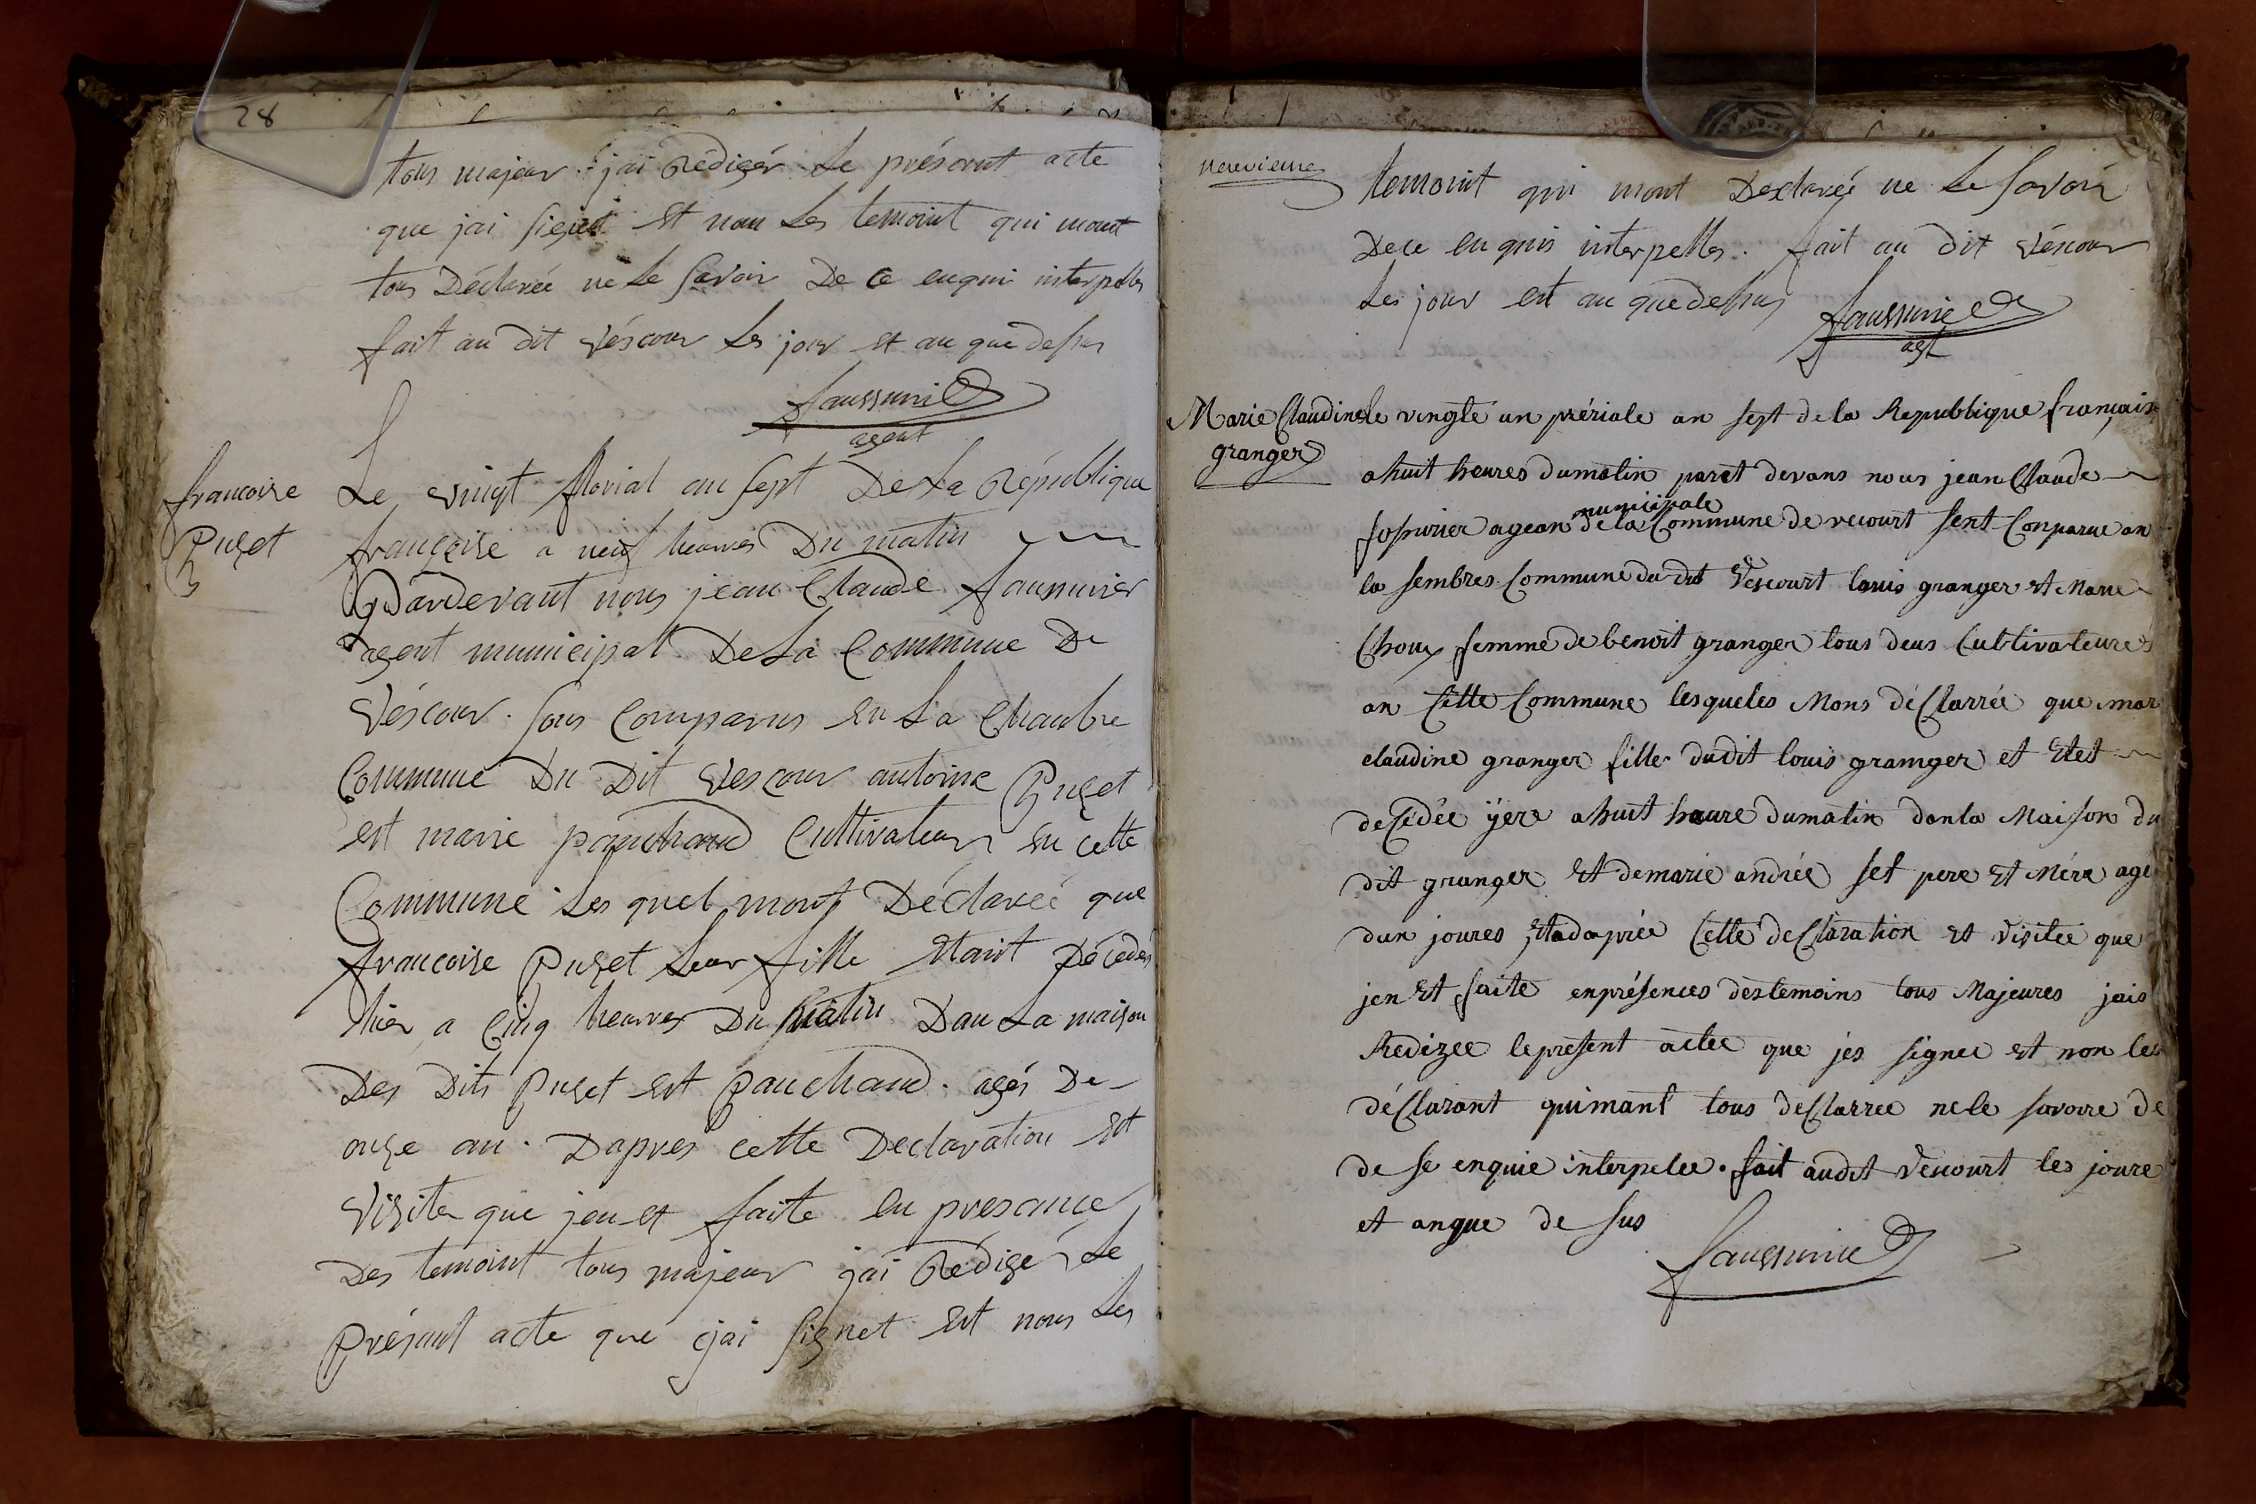 28
tous majeur jai rédigér Le présant acte
que jai signet et non Les temoint qui mont
tous Déclareé ne Le savoir De Ce enqui interpelles
fait au Dit véscour Les jour et an que dessus
saussurie
agent
francoise
Puzet
Le vingt florial an sept De La République
françoise a neuf heures Du matin
Pardevant nous jean Claude saussurier
agent municipal De La Commune De
véscour. sous Comparus en La Chambre
Commune Du Dit vescour antoine Puzet
est marie pauchaud Cultivateur en cette
Commune Les quel mont Déclareé que
francoise Puzet Leur fille Etant Décedés
hier a Cinq heures Du matin Dan La maison
Des Dits Puzet est pauchaud. agés De
onze an. Dapres cette Declaration est
visite que jen et faite en presance
Des temoint tous majeur jai Rédigé Le
Présant acte que jai signet est nous Les
neuvieme
temoint qui mont Declareé ne Le savoir
De ce enquis interpelles. fait au dit véscour
Les jour est an que dessus
saussurie
agt
Marie Claudine
granger
le vingte un prériale an sept de la Republique français
a huit heures du matin paret devans nous jean Claude
sossurier agean municipale de la Commune de vecourt sent Conparue an
la sembres Commune du dit Vescourt louis granger et Marie
Choux femme de benoit granger tous deus Cultivateures
an Cette Commune lesqueles Mons déClarrée que mar
claudine granger fille dudit louis gramger et Etet
deCédée yere a huit heure dumatin dan la Maison du
dit granger et demarie andrée set pere et Mére age
dun joures et dapriée Cette deClaration et visitée que
jen et faite enprésences des temoins tous Majeures jais
Redizee le present actee que jes signee et non les
déClarant quimant tous deClarree nele savoire de
de se enquie interpelee. fait audit vescourt les joure
et anque de sus
saussurie